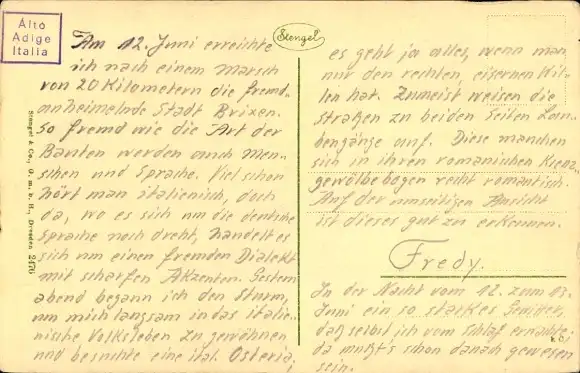 Alto
Adige
Italia
Stengel
Stengel & Co., G. m. b. H., Dresden
Am 12. Juni erreichte
ich nach einem Marsch
von 20 Kilometern die fremd-
anheimelnde Stadt Brixen.
So fremd wie die Art der
Bauten werden auch Men-
schen und Sprache. Viel schon
hört man italienisch, doch
da, wo es sich um die deutsche
Sprache noch dreht, handelt es
sich um einen fremden Dialekt
mit scharfen Akzenten. Gestern
abend begann ich den Sturm,
um mich langsam in das italie-
nische Volksleben zu gewöhnen
und besuchte eine ital. Osteria,
es geht ja alles, wenn man
nur den rechten, eisernen Wil-
len hat. Zumeist weisen die
Straßen zu beiden Seiten Lau-
bengänge auf. Diese machen
sich in ihren romanischen Kreuz-
gewölbebogen recht romantisch.
Auf der umseitigen Ansicht
ist dieses gut zu erkennen.
Fredy.
In der Nacht vom 12. zum 13.
Juni ein so starkes Gewitter,
daß selbst ich vom Schlaf erwachte;
da mußt's schon danach gewesen
sein.